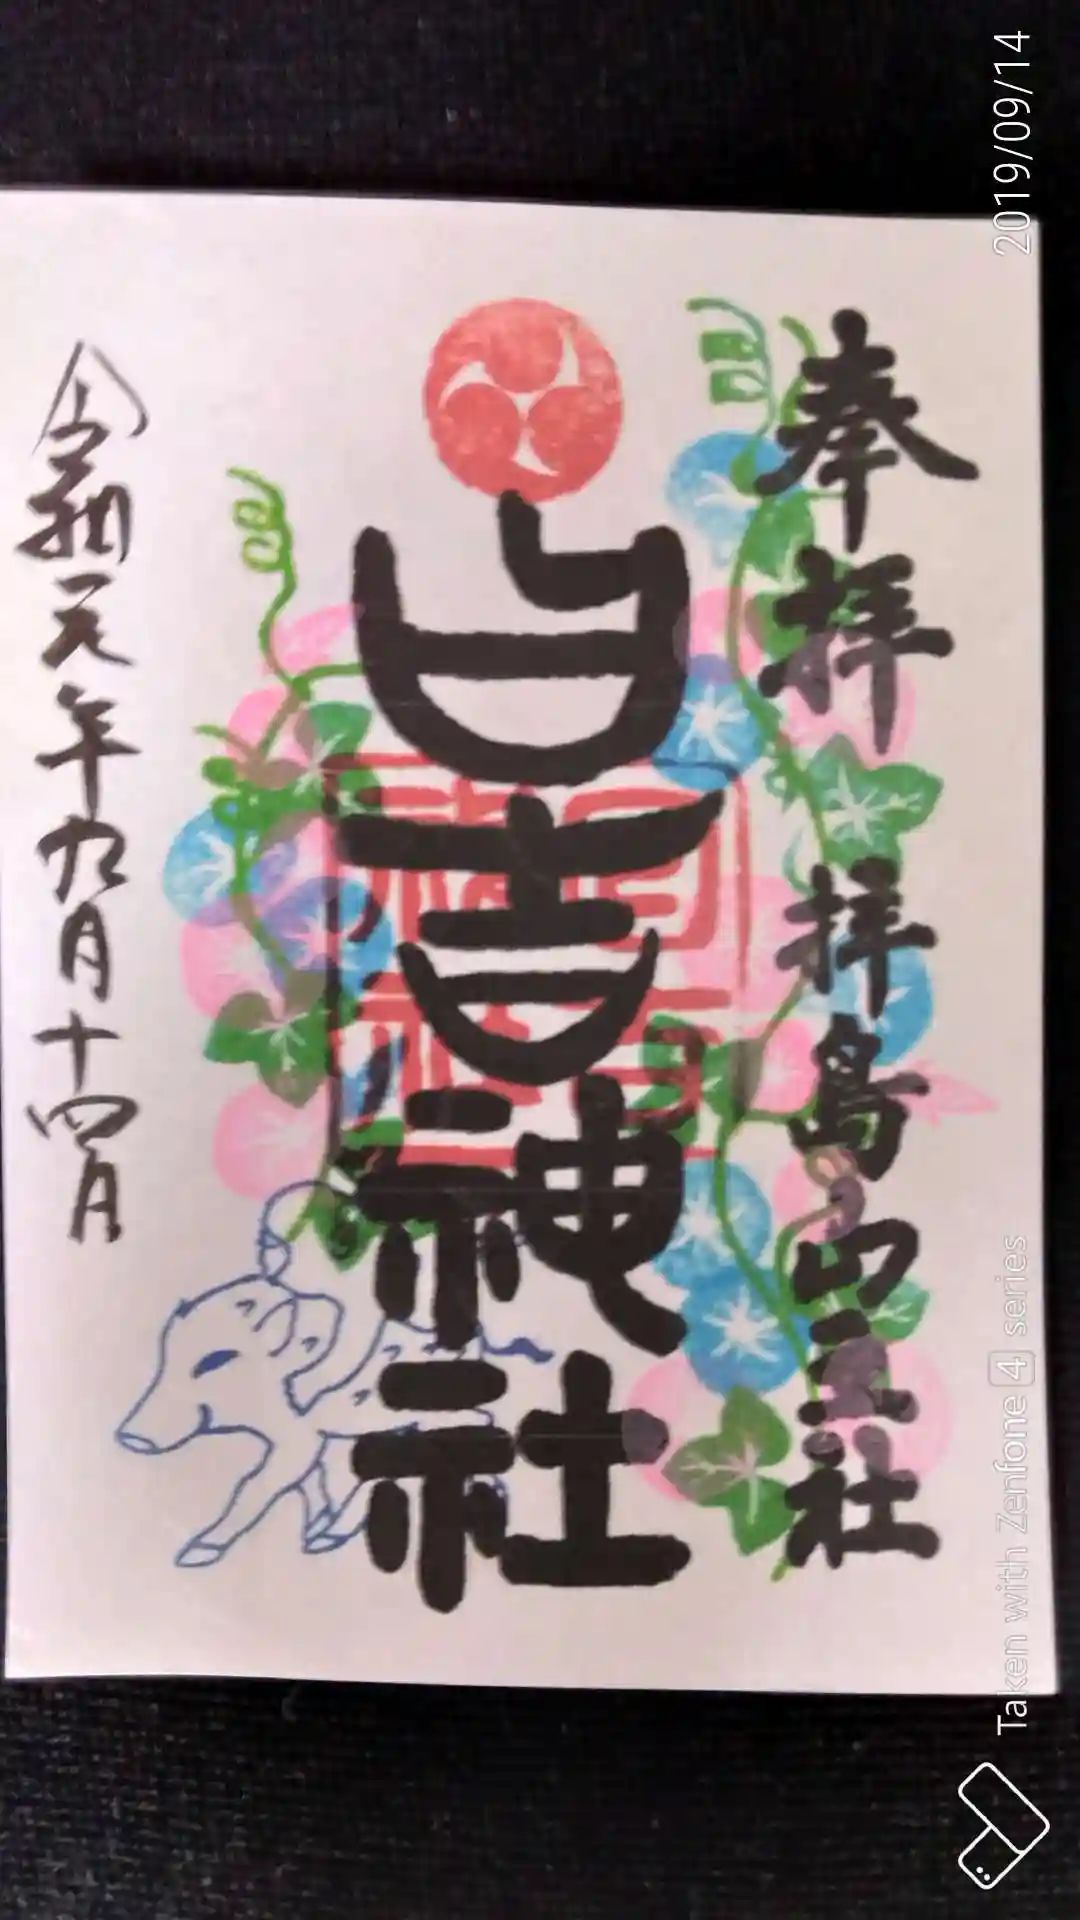 奉拝 拝島山王社
日吉神社
令和元年九月十四日
2019/09/14
Taken with Zenfone 4 series